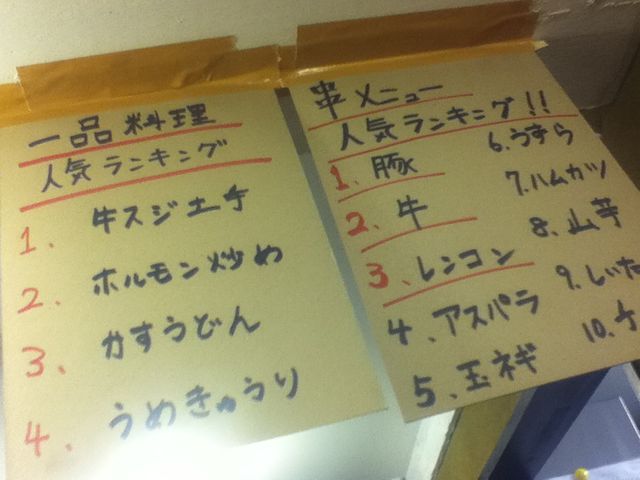 一品料理
人気ランキング
1. 牛スジ土手
2. ホルモン炒め
3. かすうどん
4. うめきゅうり
串メニュー
人気ランキング!!
1. 豚
2. 牛
3. レンコン
4. アスパラ
5. 玉ネギ
6. うずら
7. ハムカツ
8. 山芋
9. しいた
10.